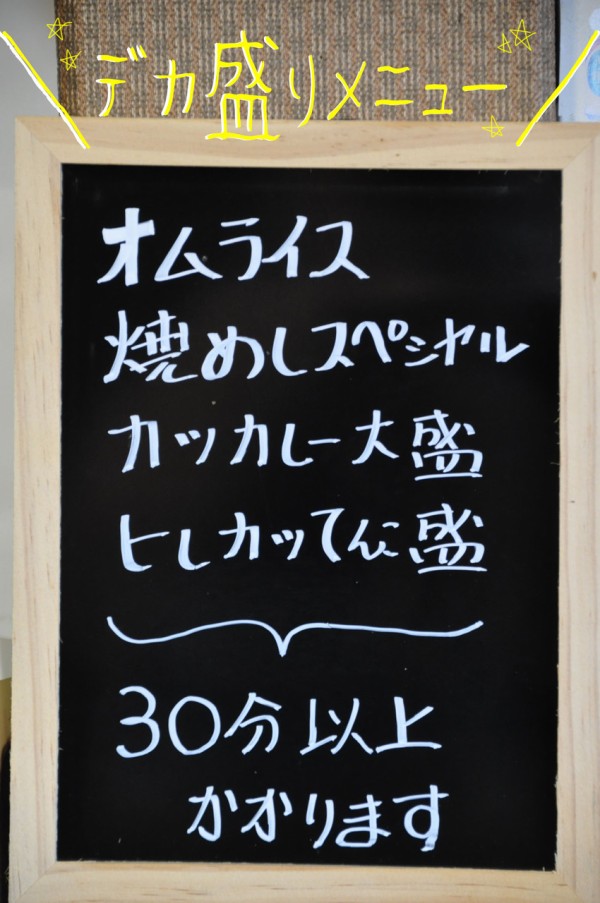 デカ盛りメニュー
オムライス
焼めしスペシャル
カツカレー大盛
ヒレカツてんこ盛
30分以上
かかります